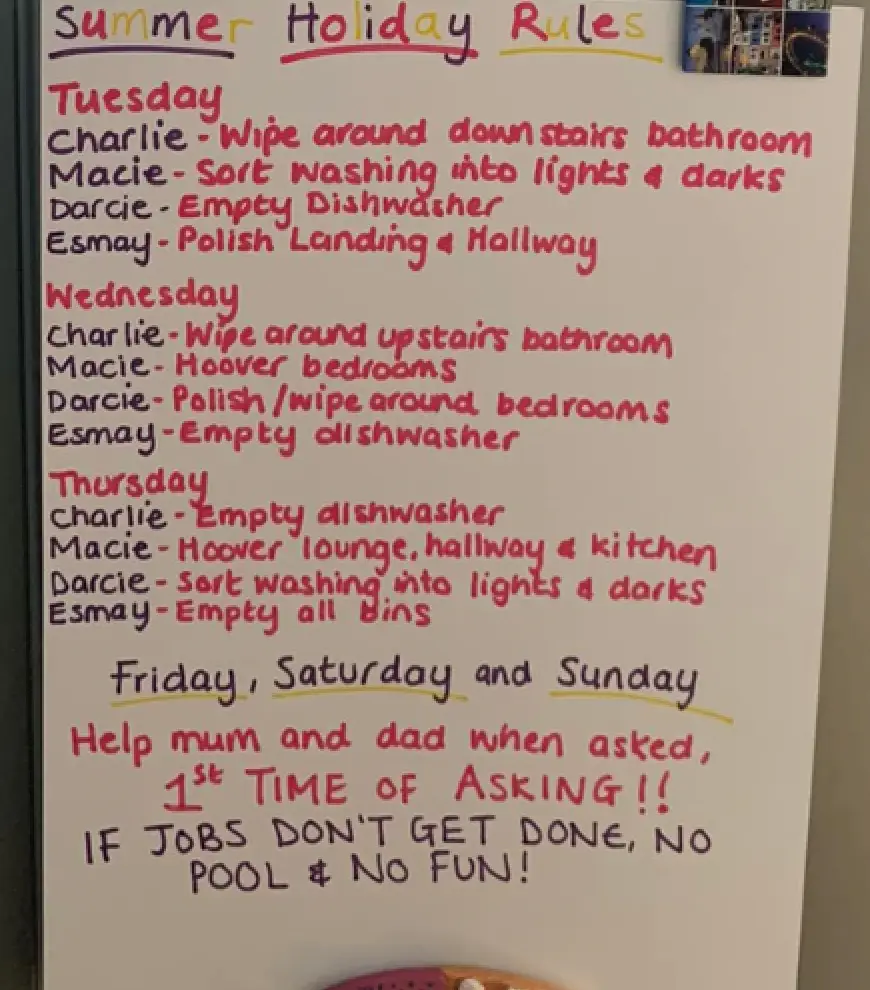 Summer Holiday Rules
Tuesday
Charlie - Wipe around downstairs bathroom
Macie - Sort washing into lights & darks
Darcie - Empty Dishwasher
Esmay - Polish Landing & Hallway
Wednesday
Charlie - Wipe around upstairs bathroom
Macie - Hoover bedrooms
Darcie - Polish/wipe around bedrooms
Esmay - Empty dishwasher
Thursday
Charlie - Empty dishwasher
Macie - Hoover lounge, hallway & kitchen
Darcie - Sort washing into lights & darks
Esmay - Empty all bins
Friday, Saturday and Sunday
Help mum and dad when asked,
1st TIME OF ASKING!!
IF JOBS DON'T GET DONE, NO
POOL & NO FUN!